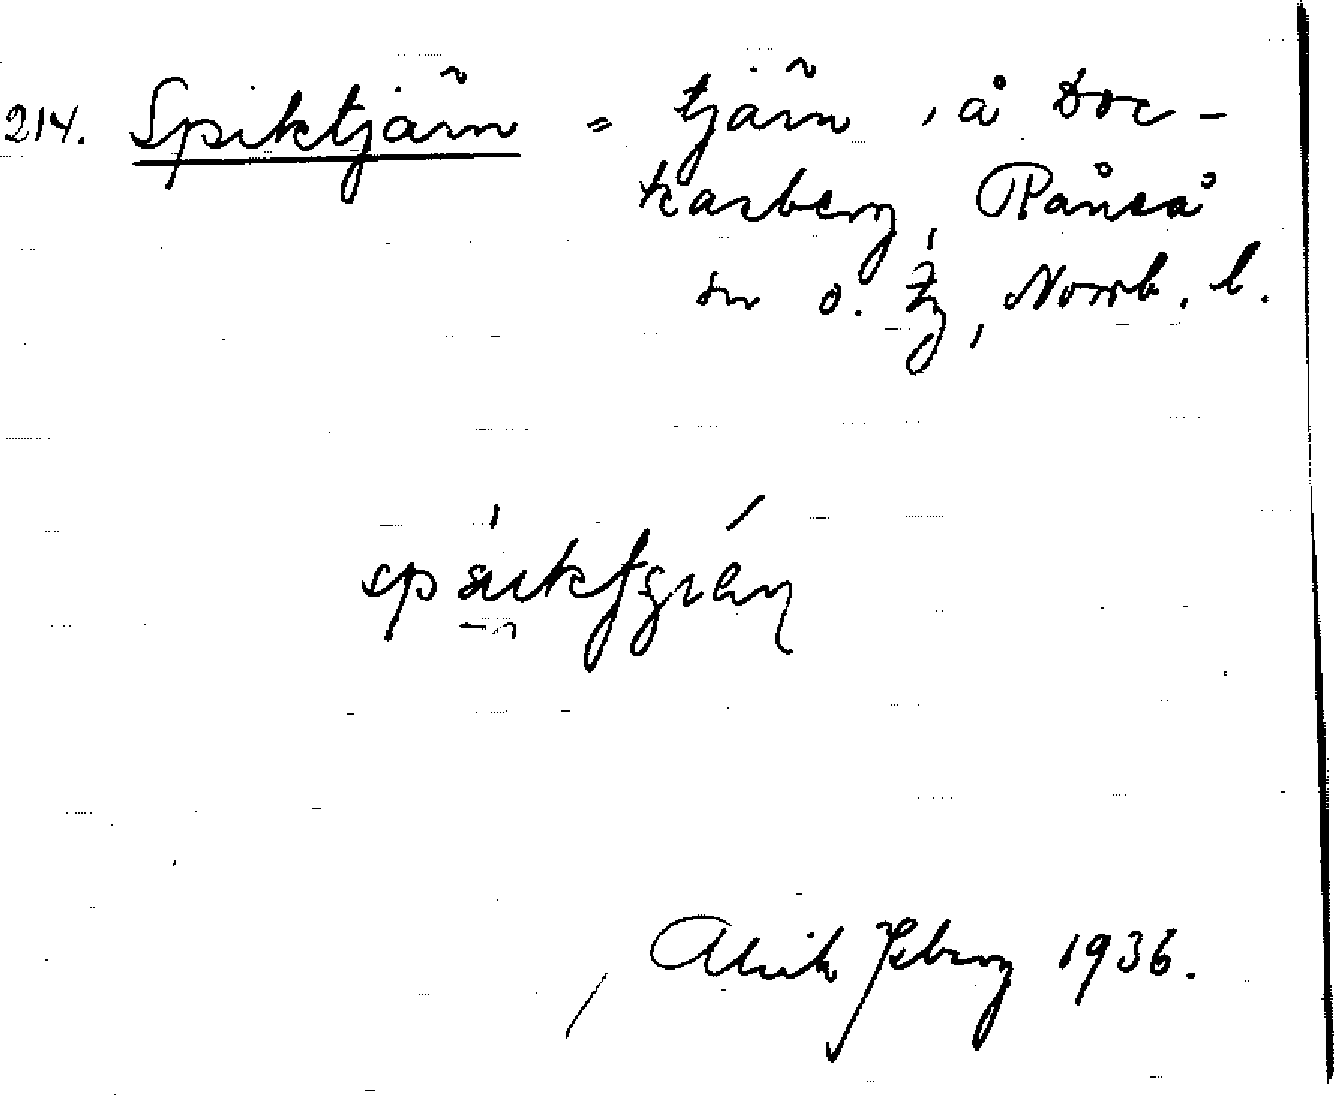 214. Spiktjärn = tjärn, å Doc-
kasberg, Råneå
sn o. tg, Norrb. l.
Alrik Isberg 1936.